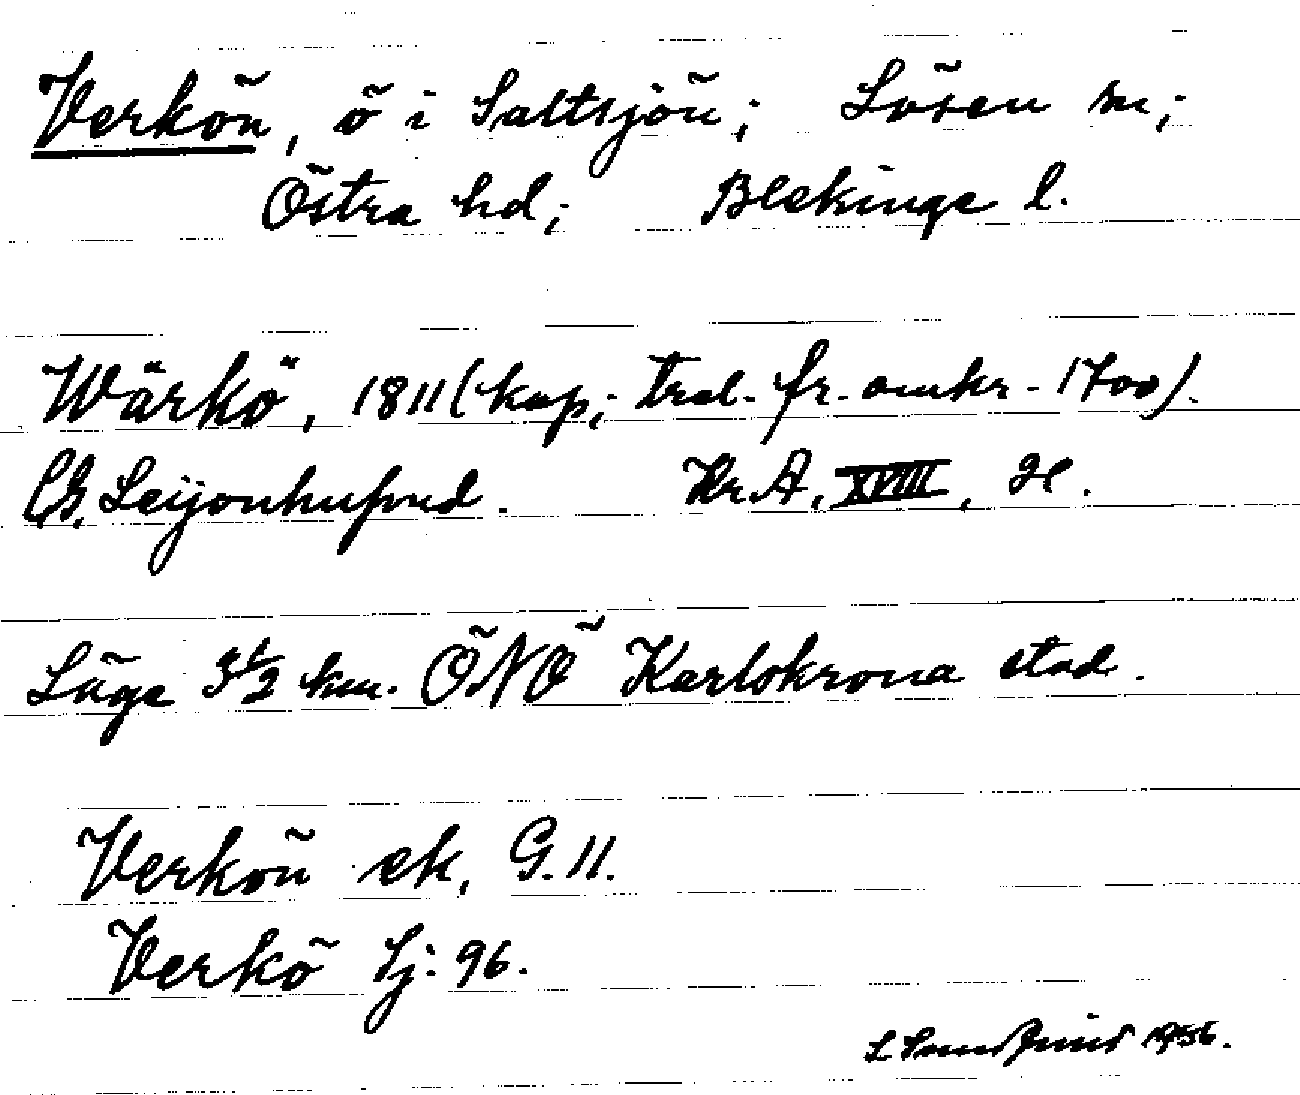 Verkön, ö i Saltsjön; Lösen sn;
Östra hd; Blekinge l.
Wärkö, 1811 (kop; trol. fr. omkr. 1700).
CG. Leijonhufvud. Kr.A. XVIII, H.
Läge 3 1/2 km. ÖNÖ Karlskrona stad.
Verkön ek, G. 11.
Verkö Sj: 96.
1956.